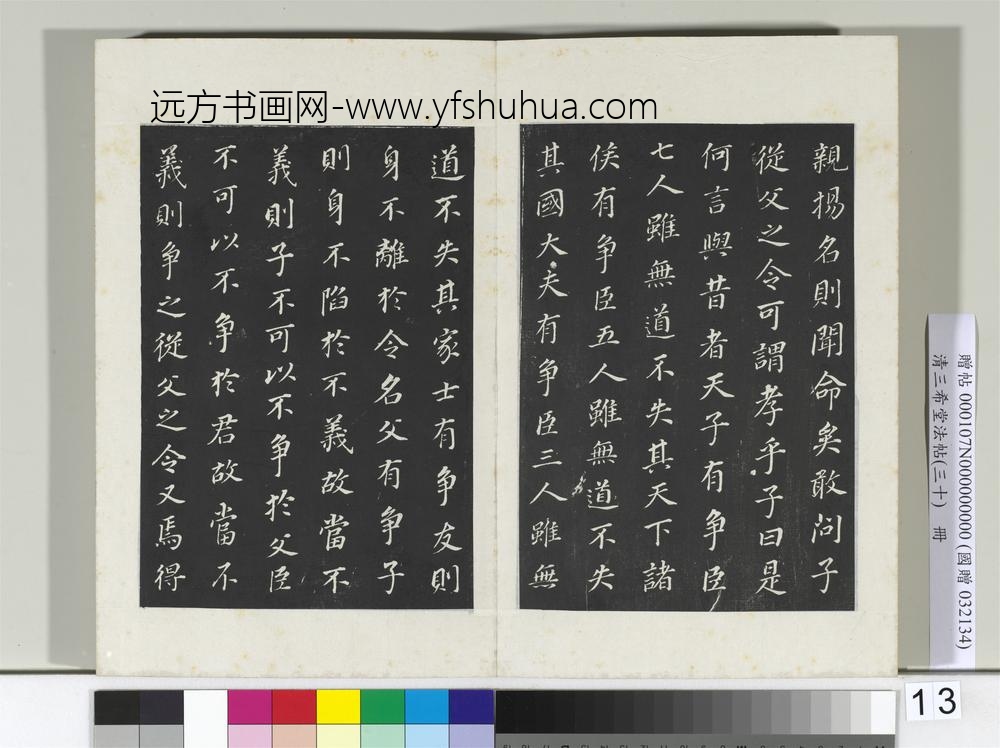 远方书画网-www.yfshuhua.com
親揚名則聞命矣敢问子
從父之令可謂孝乎子曰是
何言與昔者天子有争臣
七人雖無道不失其天下諸
侯有争臣五人雖無道不失
其國大夫有争臣三人雖無
道不失其家士有争友則
身不離於令名父有争子
則身不陷於不義故當不
義則子不可以不争於父臣
不可以不争於君故當不
義則争之從父之令又焉得
贈帖 000107N000000000 (國贈 032134)
清三希堂法帖(三十) 冊
13